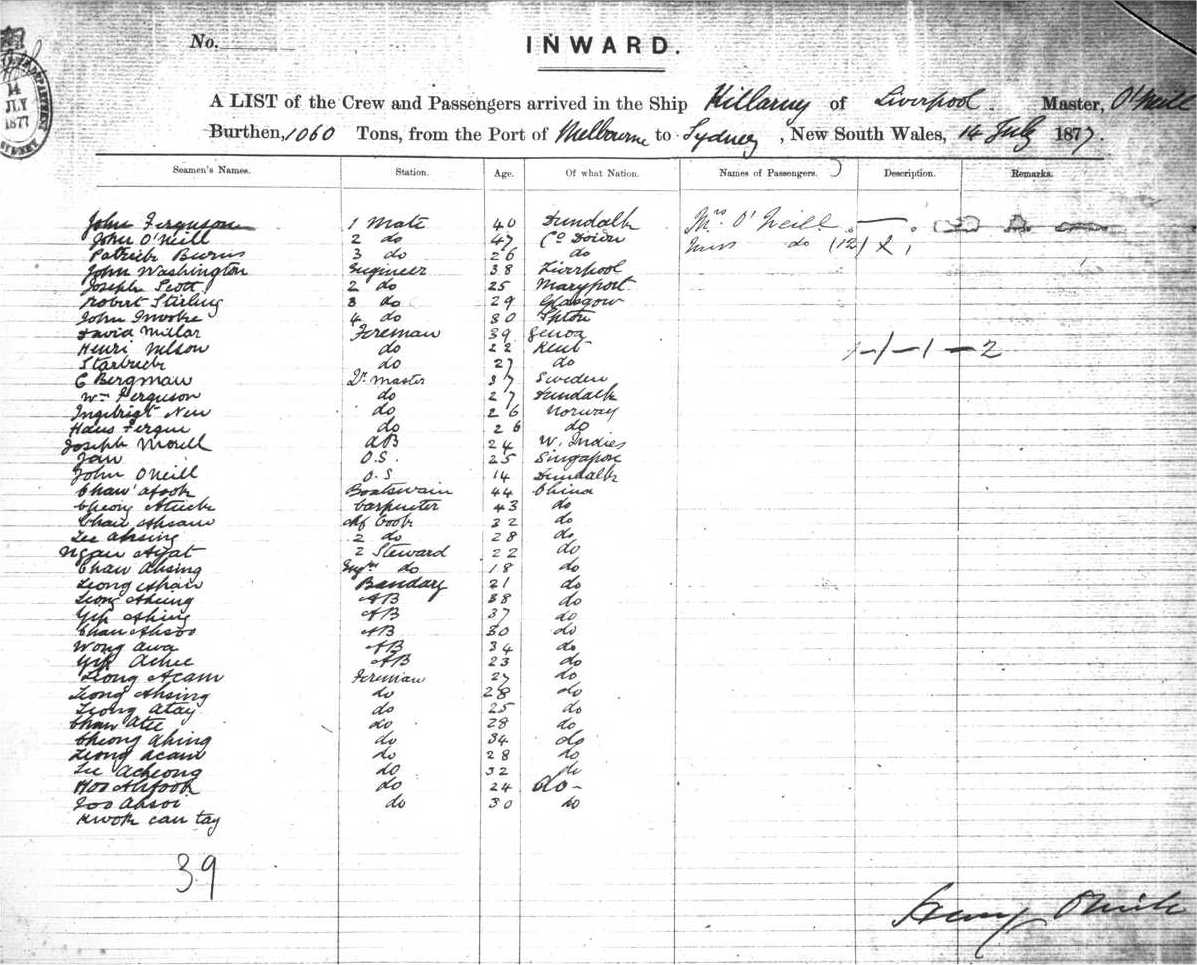 No.
INWARD.
14
JLY
1877
SYDNEY
A LIST of the Crew and Passengers arrived in the Ship Killarny of Liverpool. Master, O'Neill
Burthen, 1060 Tons, from the Port of Melbourne to Sydney, New South Wales, 14 July 1877.
Seamen's Names. Station. Age. Of what Nation. Names of Passengers. Description. Remarks.
John Ferguson 1 Mate 40 Dundalk Mrs O'Neill
John O'Neill 2 do 47 Co Down Miss do (12)
Patrick Burns 3 do 26 do
John Washington Engineer 38 Liverpool
Joseph Scott 2 do 25 Maryport
Robert Stirling 3 do 29 Glasgow
John 4 do 30
David Millar Fireman 39 Genoa
Henri Nelson do 22 Kent
Starbuck do 27 do
C Bergman Qr Master 37 Sweden
Wm Ferguson do 27 Dundalk
Ingebrigt New do 26 Norway
Hans Fergue do 26 do
Joseph Morell AB 24 W. Indies
Jan O.S. 25 Singapore
John O'Neill O.S 14 Dundalk
Chan Afook Boatswain 44 China
Cheong Carpenter 43 do
Chan Ahsam Cook 32 do
Lee Ahsing 2 do 28 do
Ngan Ayat 2 Steward 22 do
Chan Ahsing do 18 do
Leong Ahan Bandary 21 do
Leong AB 38 do
Yip Ahing AB 37 do
Chan Ahsoo AB 30 do
Wong Awa AB 34 do
Yip Achee AB 23 do
Leong Acam Fireman 27 do
Leong Ahsing do 28 do
Leong Atay do 25 do
Chan Atee do 28 do
Cheong Ahing do 34 do
Leong Acam do 28 do
Lee Acheong do 32 do
Hoo Ahfook do 24 do -
Ahsoi do 30 do
Kwok Can Tay
1-1-1-2
39
Henry O'Neill